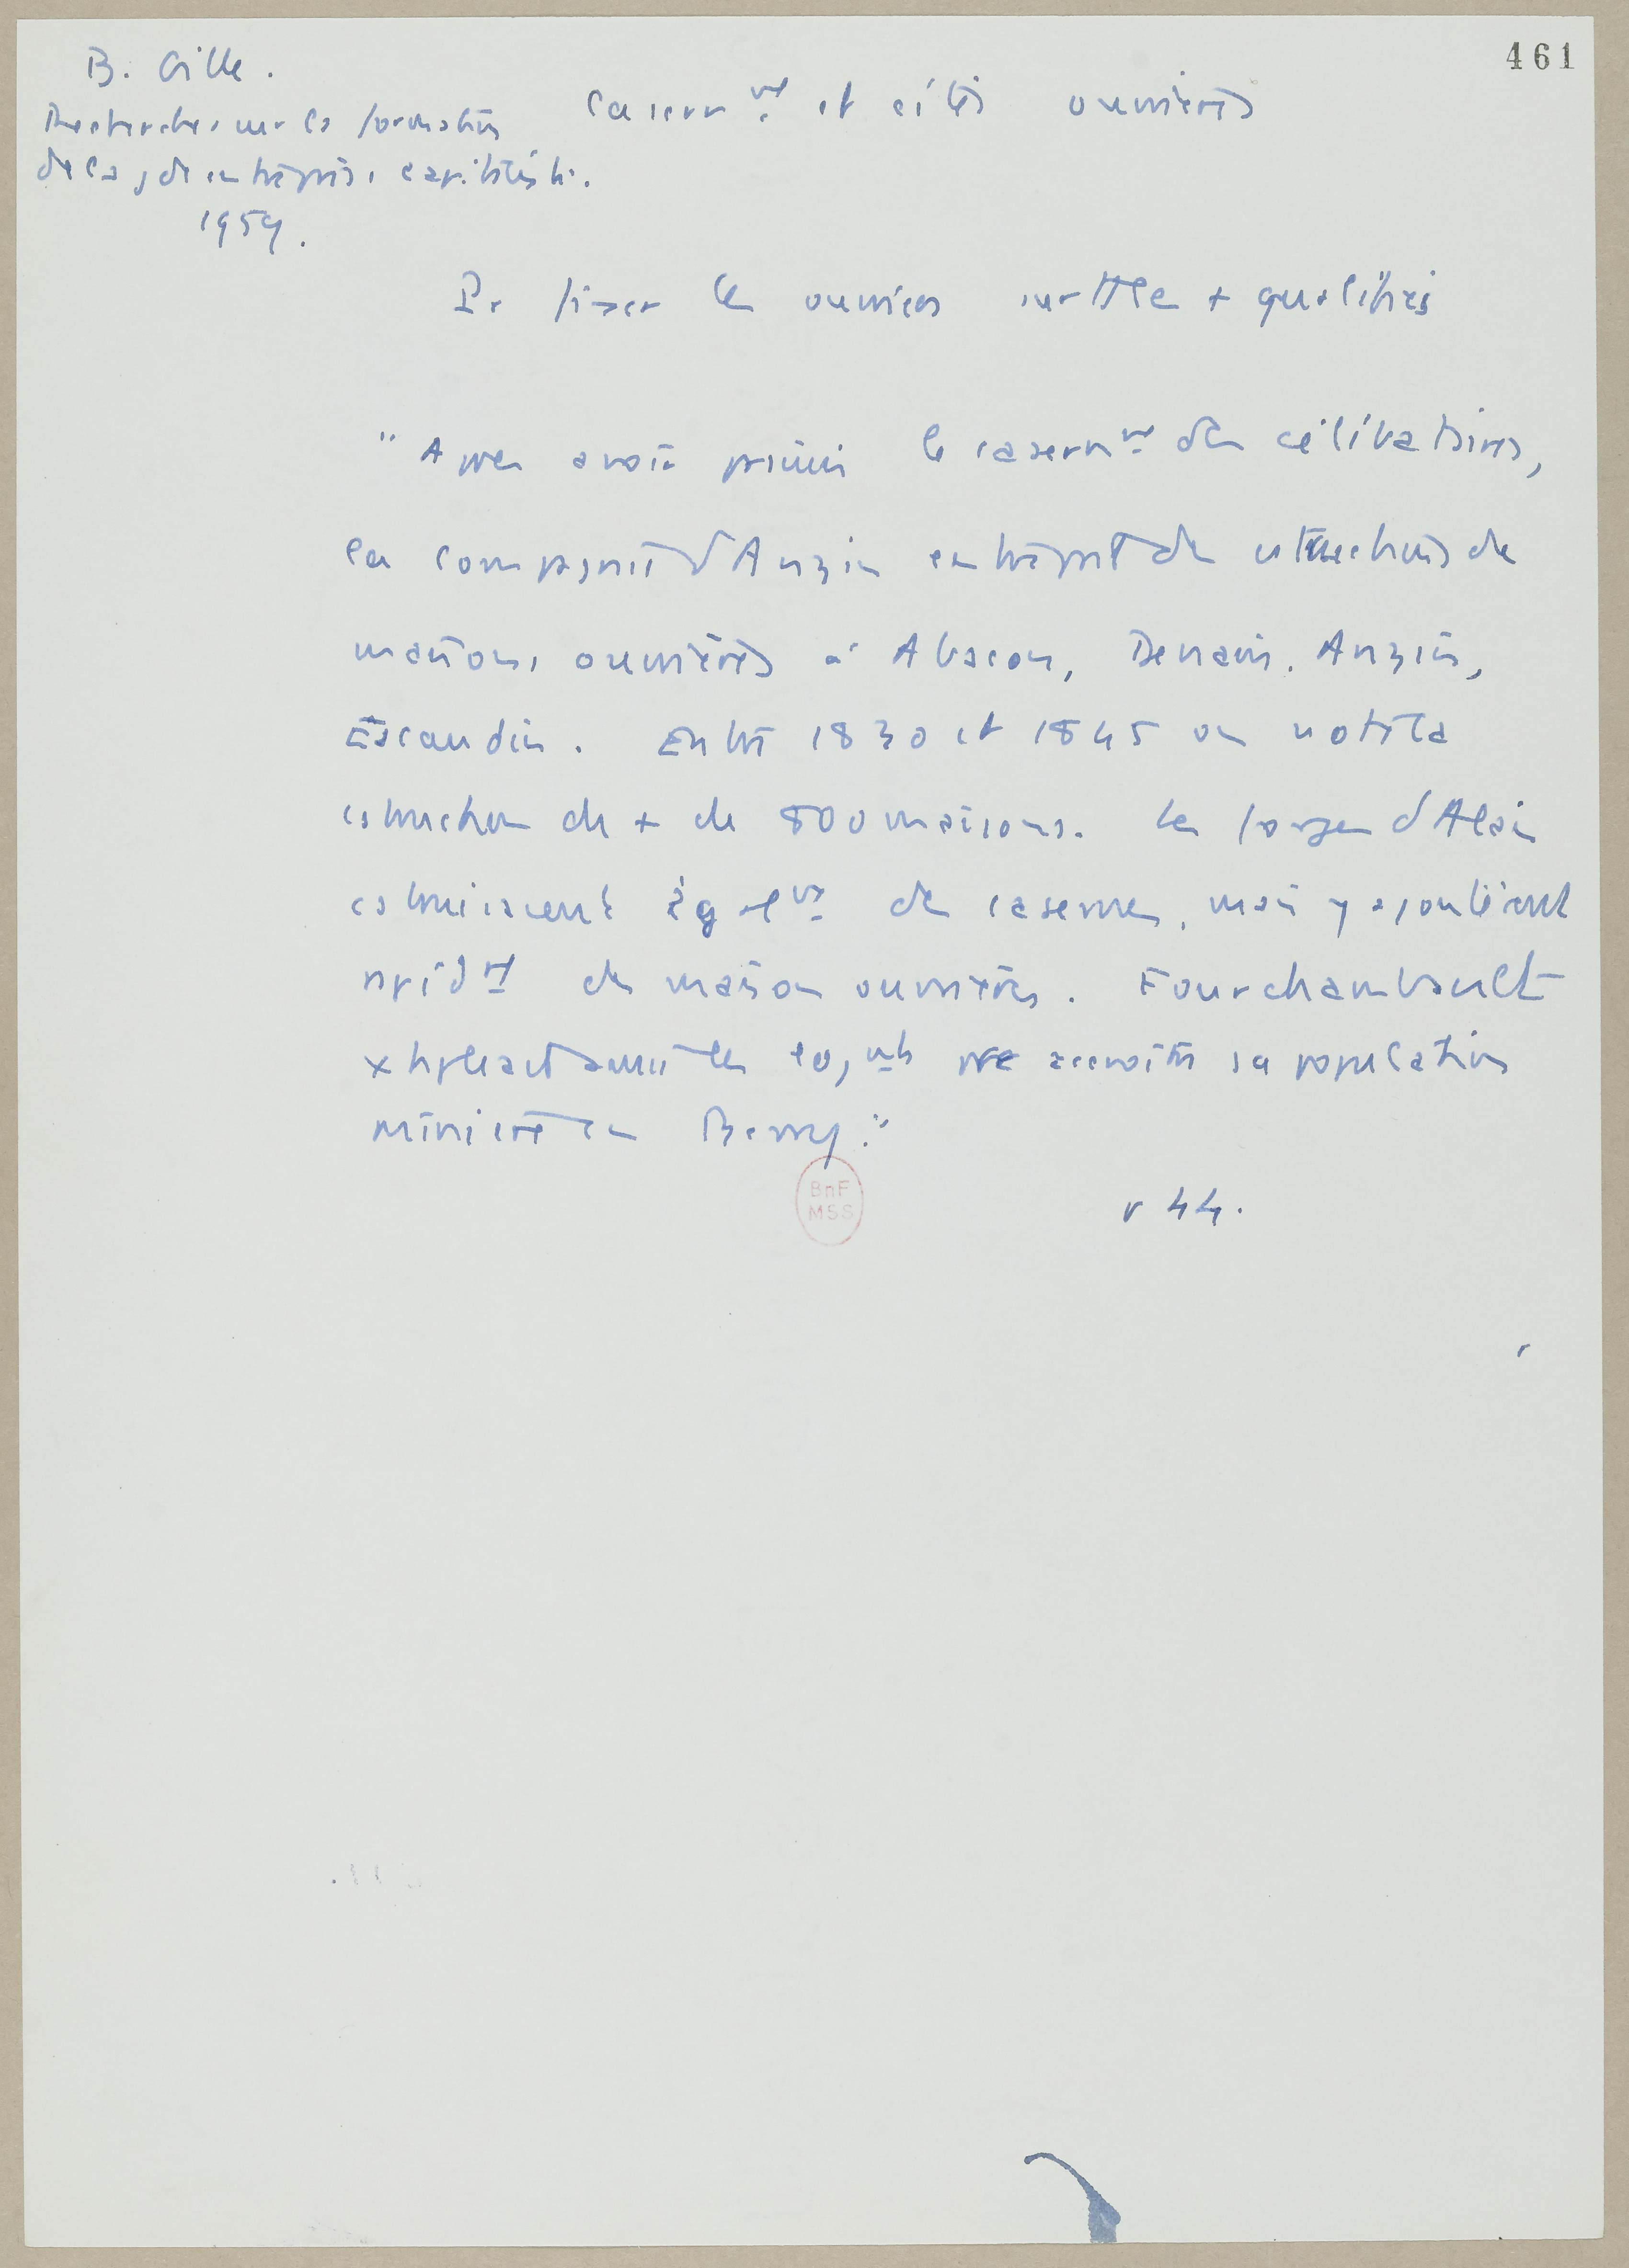 461
B. Gille.
Recherches sur la formation
de la gde entreprise capitaliste.
1959.
Casernt et cités ouvrières
Pr fixer les ouvriers surtt les + qualifiés
"Apres avoir prévu le casernt des célibataires,
la compagnie d'Anzin entreprit des constructions de
maisons ouvrières à Abscon, Denain, Anzin,
Escaudin. Entre 1830 et 1845 on nota la
construction de + de 800 maisons. Les forges d'Alais
construisirent égalt des casernes, mais y ajoutèrent
rapidt des maisons ouvrières. Fourchambault
les logts pr accroître sa population
minière en Berry."
BnF
MSS
p 44.